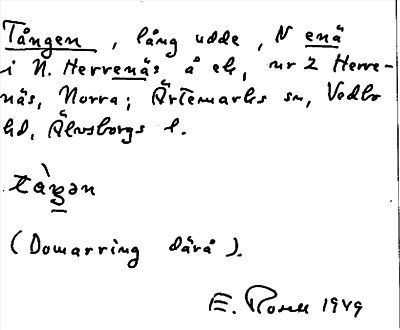 Tången, lång udde, N enä
i N. Herrenäs å ek, nr 2 Herre-
näs, Norra; Ärtemarks sn, Vedbo
hd, Älvsborgs l.
tàŋən
(Domarring därå).
E. Rosell 1949